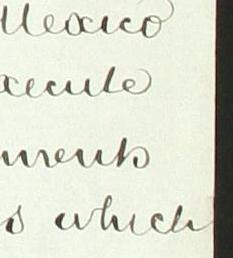 Mexico
xecute
ments
s which